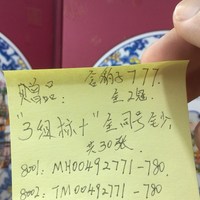 赠品: 金豹子777.
全2冠
"3组标十"全同号至少
共30张
8001: MH00492771-780.
8002: TM00492771-780